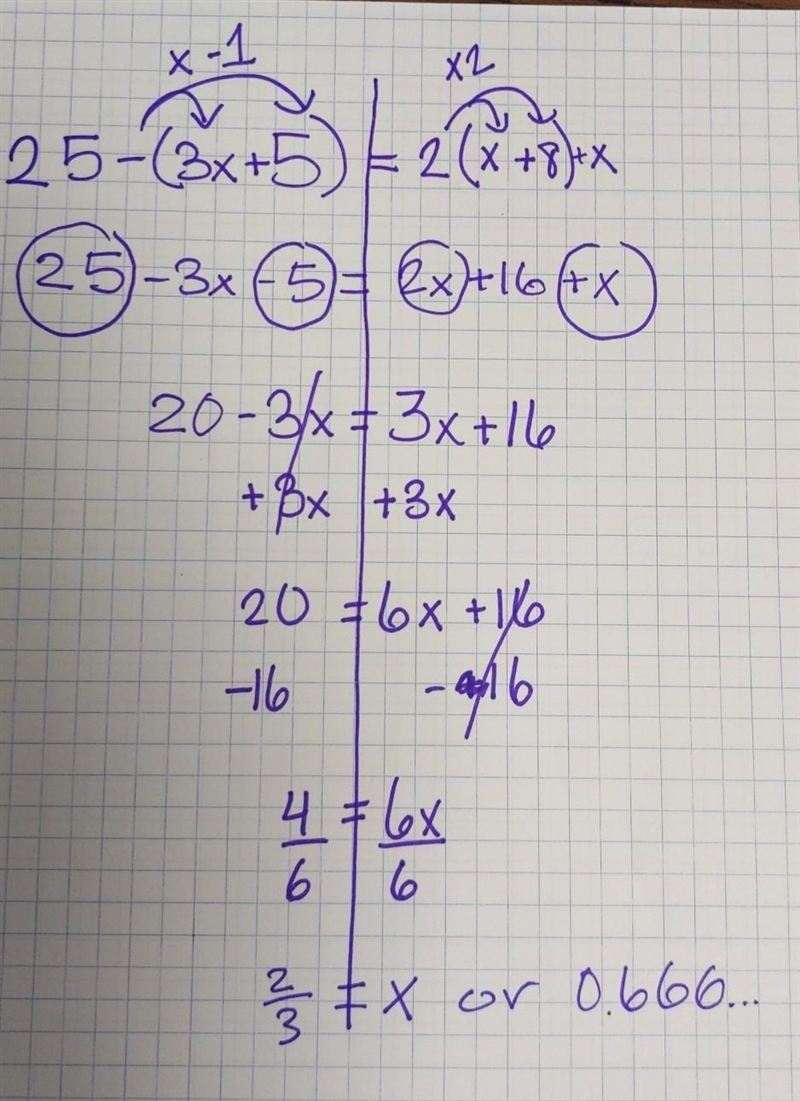 x -1 x2
25 -(3x+5) = 2(x +8)+x
25 -3x -5 = 2x +16 +x
20 - 3x = 3x +16
+3x +3x
20 = 6x +16
-16 -16
4 = 6x
6 6
2/3 = x or 0.666...